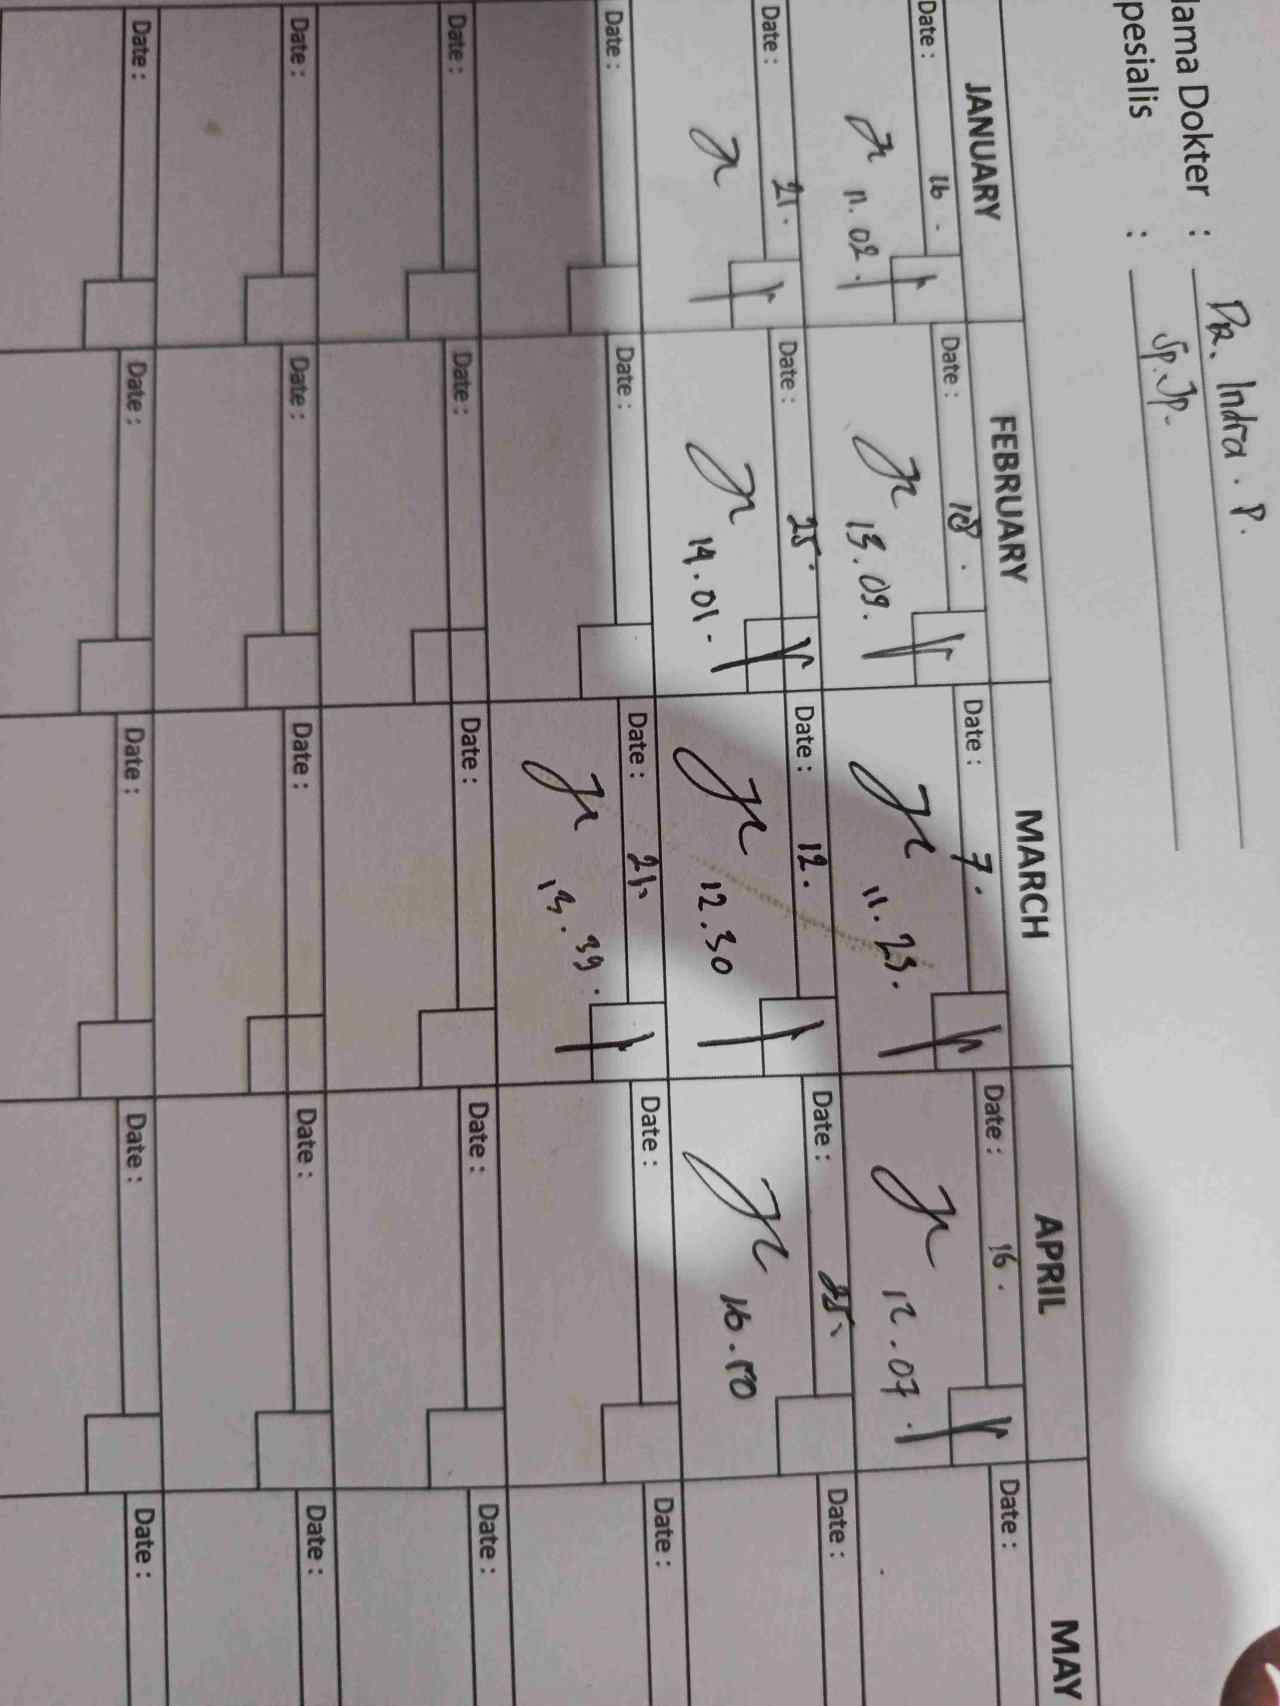 Nama Dokter : DR. Indra . P.
pesialis : Sp.Jp.
JANUARY FEBRUARY MARCH APRIL MAY
Date : 16 . Date : 18 . Date : 7 . Date : 16 . Date :
11.02. 13.09. 11.23. 12.07.
Date : 21. Date : 25. Date : 12. Date : 25. Date :
14.01. 12.30
Date : Date : Date : 21. Date : Date :
13.39.
Date : Date : Date : Date : Date :
Date : Date : Date : Date : Date :
Date : Date : Date : Date : Date :